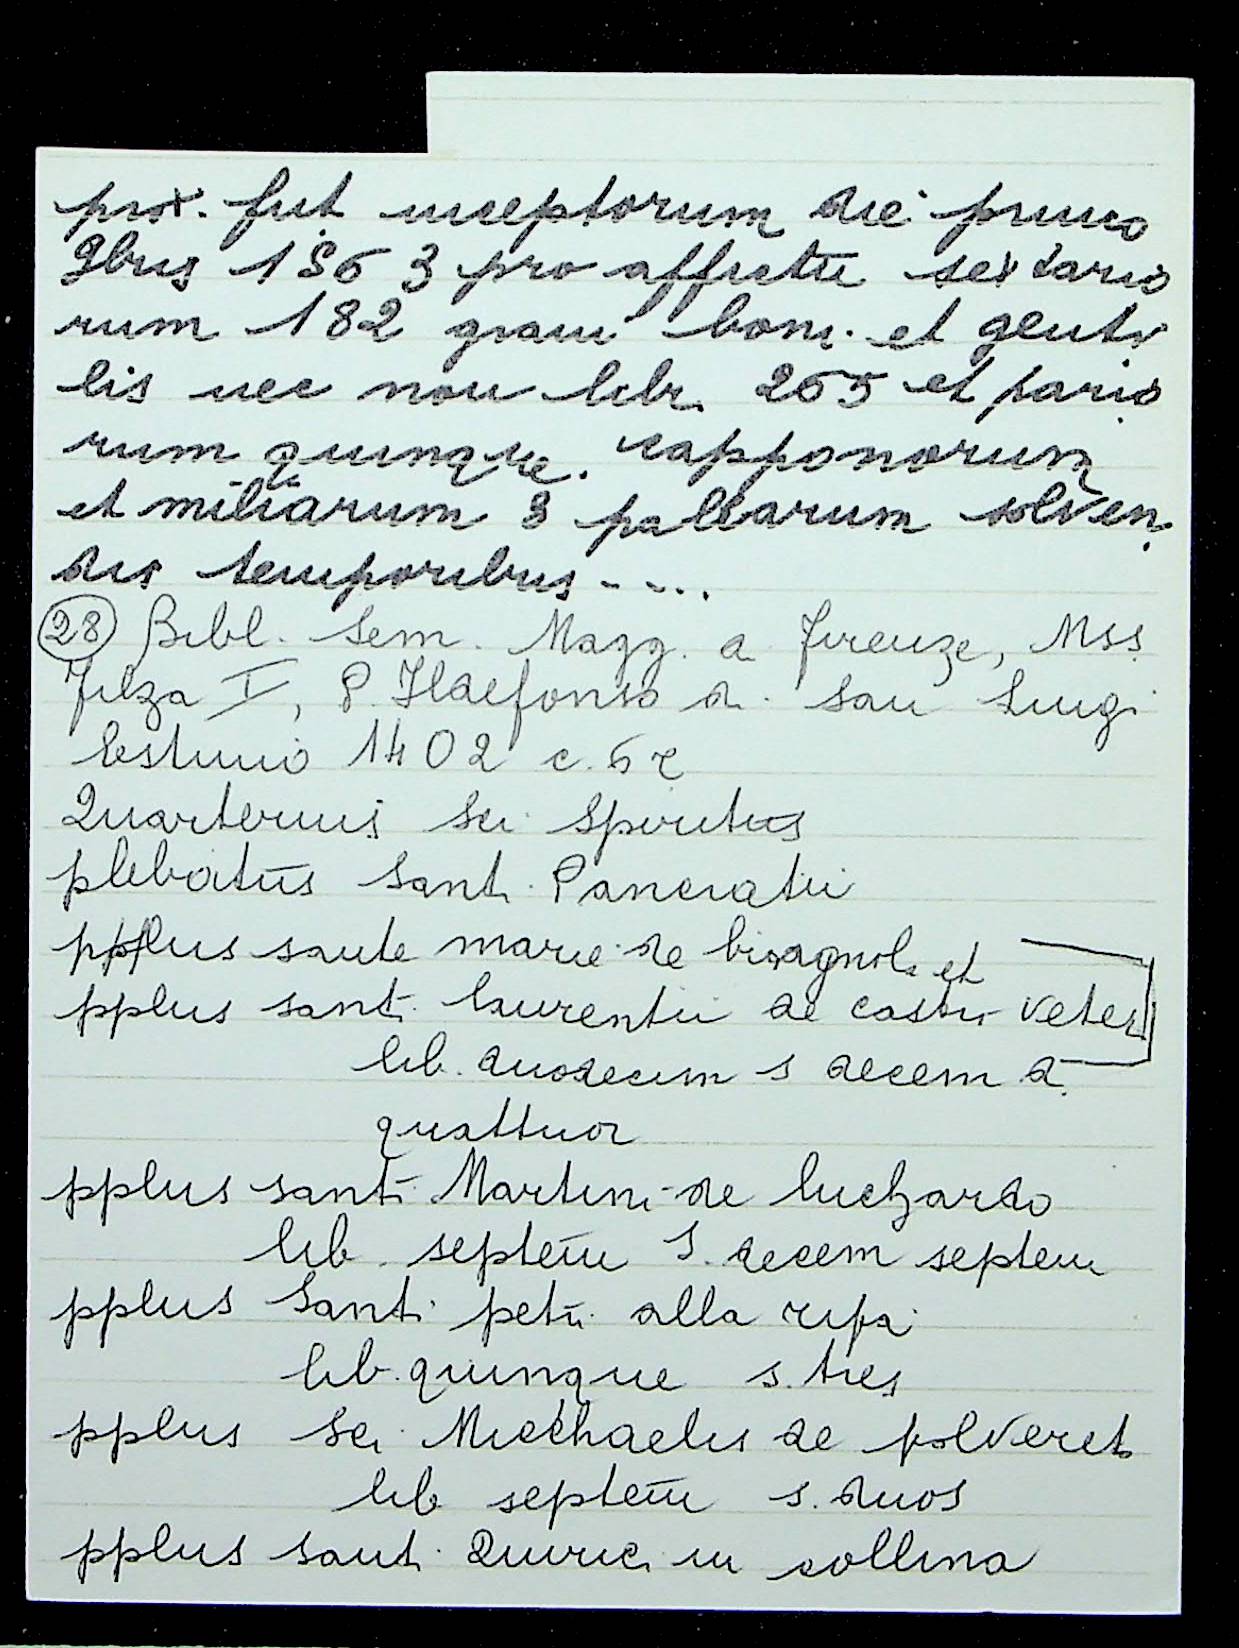 prox. fut inceptorum die primo
9bris 1563 pro affictu sextario
rum 182 grani boni et genti
lis nec non libr. 265 et pario
rum quinque. capponorum
et miliarum 3 pallearum solven
dis temporibus - - ..
(28) Bibl. Sem. Magg. a Firenze, Mss
Filza I, P. Ildefonso di San Luigi
Estimo 1402 c. 6r
Quarterius Sci Spiritus
plebatus Santi Pancratii
pplus sante marie de bignola et
pplus santi laurentii de castri veteri
lib. duodecim s decem d.
quattuor
pplus santi Martini de luchardo
lib. septem S. decem septem
pplus Santi petri alla ripa
lib. quinque s. tres
pplus Sci Michaelis de polvereto
lib septem s. duos
pplus santi Quirici in collina